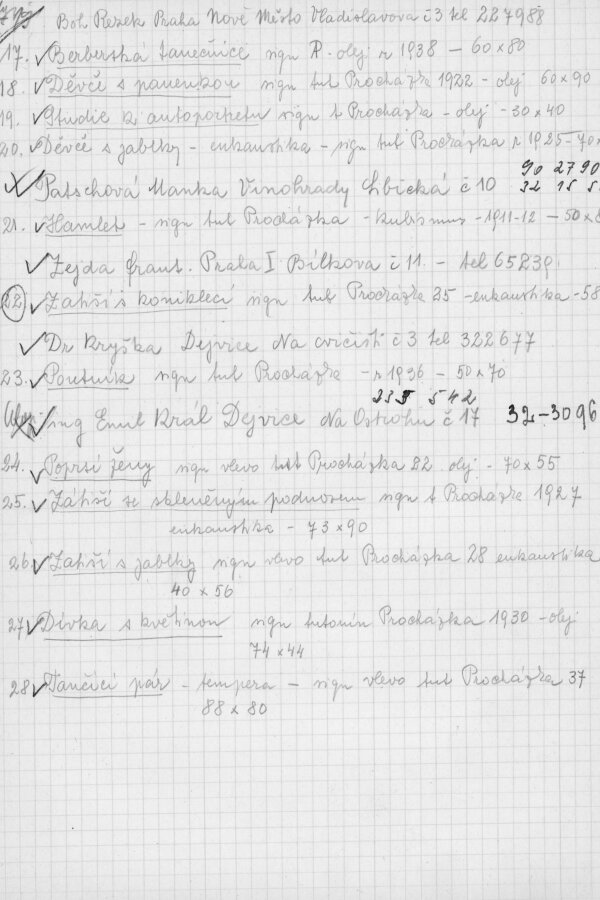 Boh Rezek Praha Nové Město Vladislavova č 3 tel 227988
17. Berberská tanečnice sign P. olej r 1938 – 60 x 80
18. Děvče s panenkou sign tut Procházka 1922 – olej 60 x 90
19. Studie k autoportretu sign t Procházka – olej – 30 x 40
20. Děvče s jablky – enkaustika – sign tut Procházka r 1925 – 70 x
90 2790
Patschová Manka Vinohrady Libická č 10 32 15 5
21. Hamlet – sign tut Procházka – kubismus – 1911-12 – 50 x
Zejda Frant. Praha I Bílkova č 11 – tel 65239
22. Zátiší s koniklecí sign tut Procházka 25 – enkaustika – 58
Dr Kryška Dejvice Na cvičišti č 3 tel 322677
23. Poutník sign tut Procházka – r 1936 – 50 x 70
235 542
ing Emil Král Dejvice Na Ostrohu č 17 32-3096
24. Poprsí ženy sign vlevo tut Procházka 22 olej – 70 x 55
25. Zátiší se skleněným podnosem sign t Procházka 1927
enkaustika – 73 x 90
26. Zátiší s jablky sign vlevo tut Procházka 28 enkaustika
40 x 56
27. Dívka s květinou sign Antonín Procházka 1930 – olej
74 x 44
28. Tančící pár – tempera – sign vlevo tut Procházka 37
88 x 80